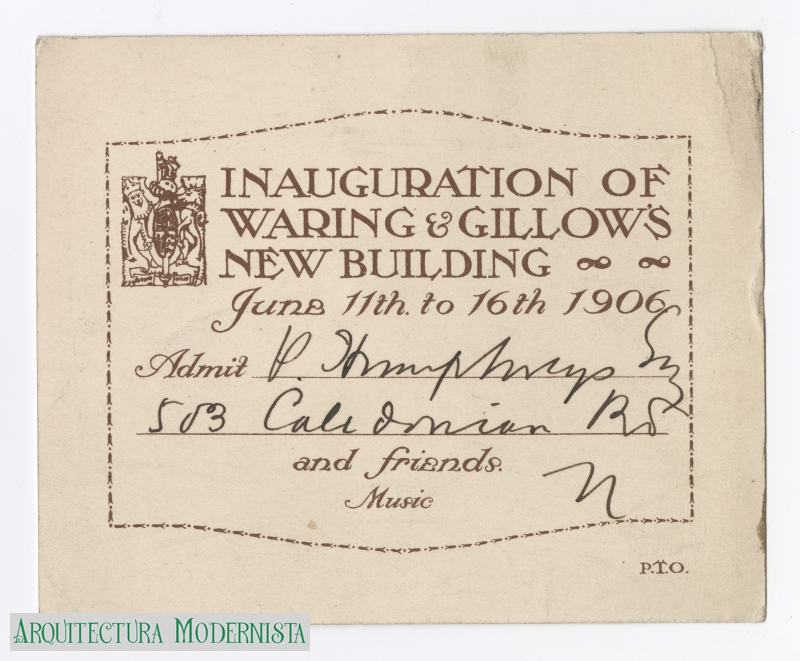 INAUGURATION OF
WARING & GILLOW'S
NEW BUILDING
June 11th. to 16th 1906
Admit P. Humphreys Esq
503 Caledonian Rd
and friends.
N
Music
P.T.O.
ARQUITECTURA MODERNISTA